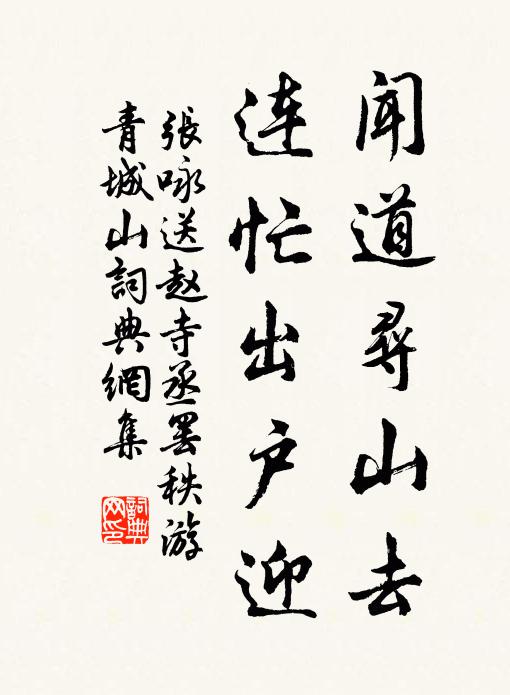 闻道尋山去
連忙出户迎
張咏送赵寺丞罢秩游
青城山詞典網集
詞典
网印